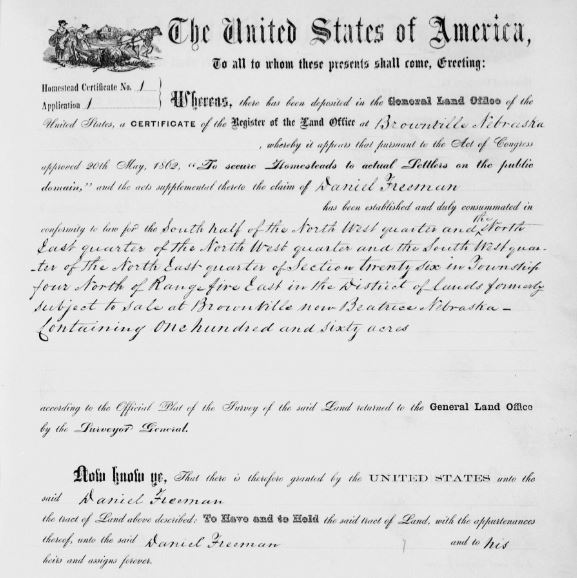 The United States of America,
To all to whom these presents shall come, Greeting:
Homestead Certificate No. 1
Application 1
Whereas, there has been deposited in the General Land Office of the
United States, a CERTIFICATE of the Register of the Land Office at Brownville Nebraska
, whereby it appears that pursuant to the Act of Congress
approved 20th May, 1862, "To secure Homesteads to actual Settlers on the public
domain," and the acts supplemental thereto the claim of Daniel Freeman
has been established and duly consummated in
conformity to law for the South half of the North West quarter and the North
East quarter of the North West quarter and the South West quar-
-ter of the North East quarter of Section twenty six in Township
four North of Range five East in the District of Lands formerly
subject to sale at Brownville now Beatrice Nebraska –
Containing One hundred and sixty acres
according to the Official Plat of the Survey of the said Land returned to the General Land Office
by the Surveyor General.
Now know ye, That there is therefore granted by the UNITED STATES unto the
said Daniel Freeman
the tract of Land above described: To Have and to Hold the said tract of Land, with the appurtenances
thereof, unto the said Daniel Freeman and to his
heirs and assigns forever.